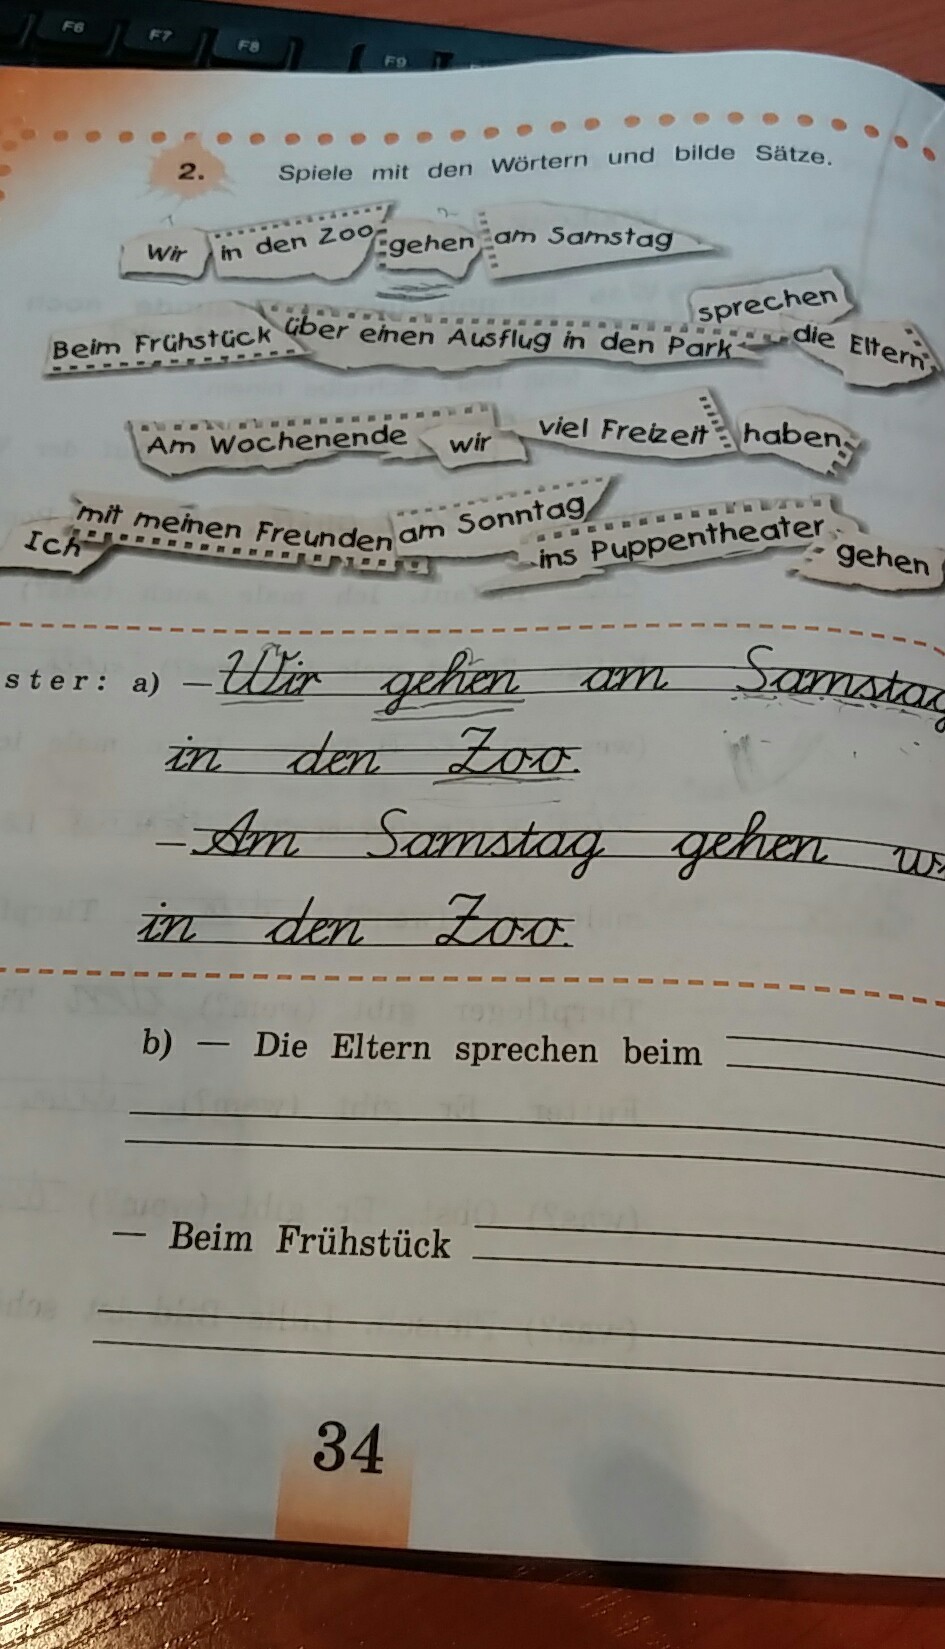 F6 F7 F8 F9
2. Spiele mit den Wörtern und bilde Sätze.
Wir in den Zoo gehen am Samstag
Beim Frühstück über einen Ausflug in den Park sprechen die Eltern
Am Wochenende wir viel Freizeit haben
Ich mit meinen Freunden am Sonntag ins Puppentheater gehen
ster: a) – Wir gehen am Samstag
in den Zoo.
– Am Samstag gehen
in den Zoo.
b) — Die Eltern sprechen beim
— Beim Frühstück
34